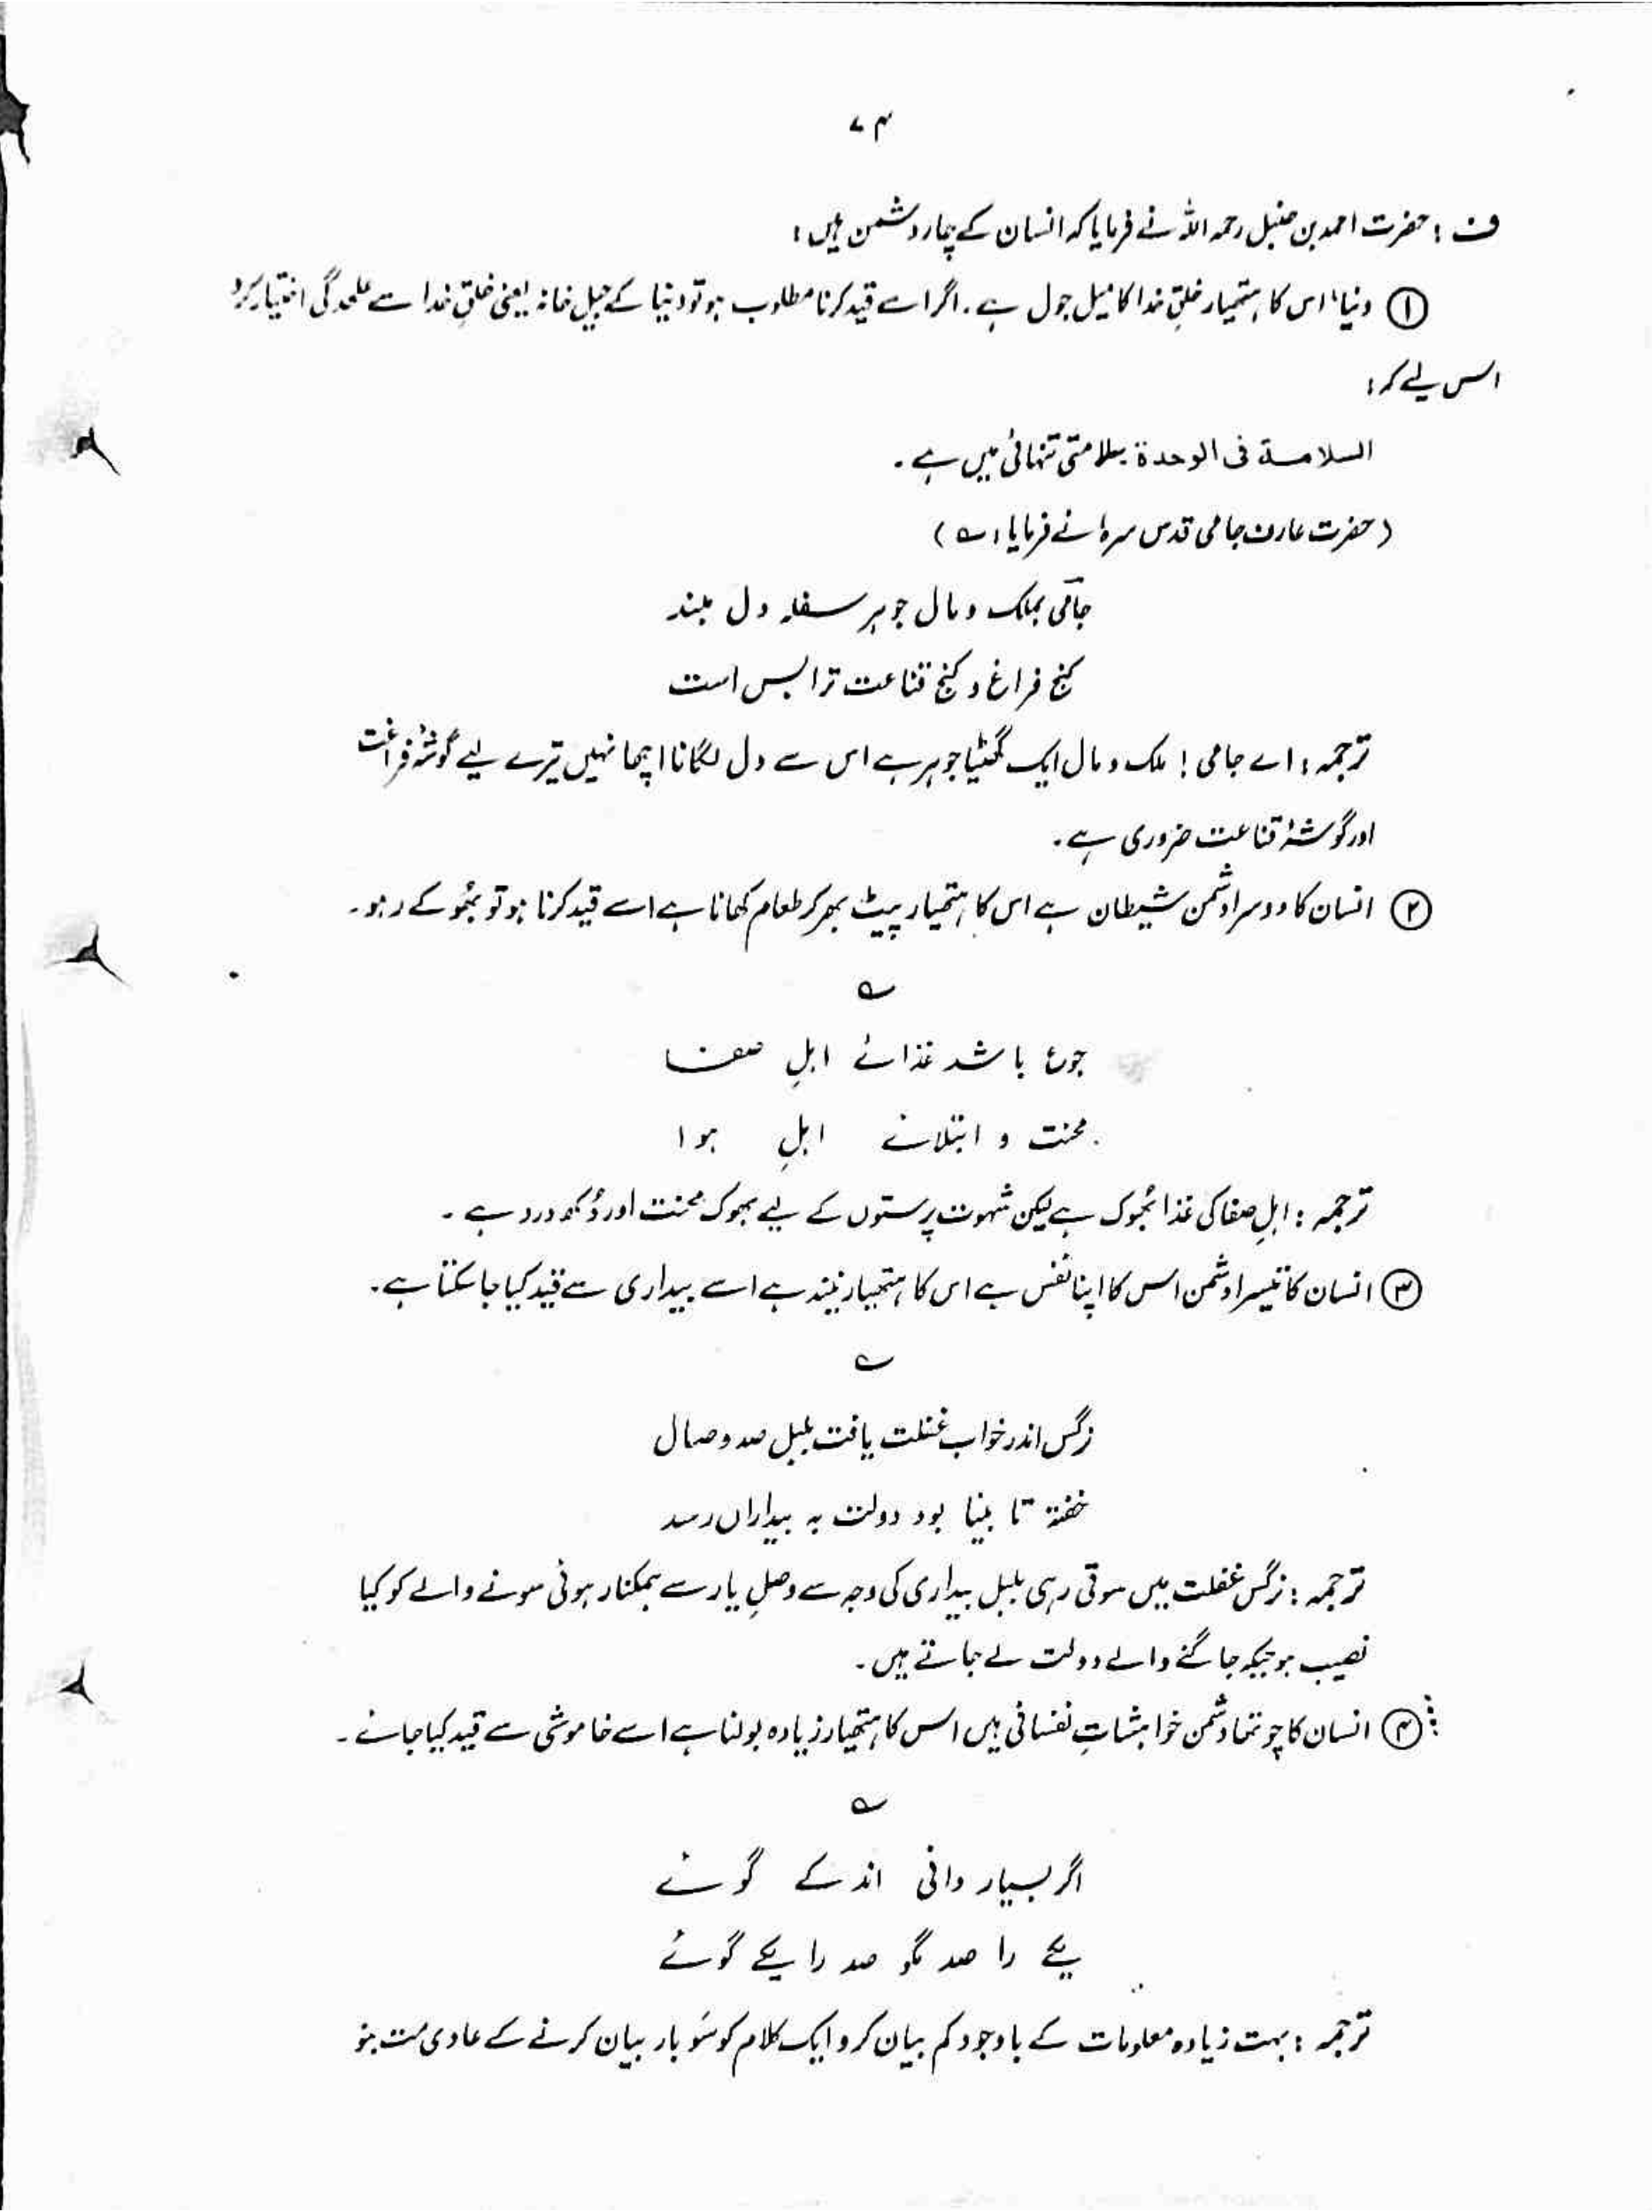 ۷۴
ف : حضرت احمد بن حنبل رحمہ اللہ نے فرمایا کہ انسان کے چار دشمن ہیں :
① دنیا، اس کا ہتھیار خلقِ خدا کا میل جول ہے . اگر اسے قید کرنا مطلوب ہو تو دنیا کے جیل خانہ یعنی خلقِ خدا سے علٰحدگی اختیار کرو
اس لیے کہ :
السلامة فی الوحدة سلامتی تنہائی میں ہے ۔
( حضرت عارف جامی قدس سرہٗ نے فرمایا : ؎ )
جامی بملک و مال چو ہر سفلہ دل مبند
کنج فراغ و گنج قناعت ترا بس است
ترجمہ : اے جامی ! ملک و مال ایک گھٹیا جوہر ہے اس سے دل لگانا اچھا نہیں تیرے لیے گوشۂ فراغت
اور گوشۂ قناعت ضروری ہے ۔
② انسان کا دوسرا دشمن شیطان ہے اس کا ہتھیار پیٹ بھر کر طعام کھانا ہے اسے قید کرنا ہو تو بھُوکے رہو ۔
؎
جوع باشد غذائے اہلِ صفا
محنت و ابتلائے اہلِ ہوا
ترجمہ : اہلِ صفا کی غذا بھُوک ہے لیکن شہوت پرستوں کے لیے بھوک محنت اور دُکھ درد ہے ۔
③ انسان کا تیسرا دشمن اس کا اپنا نفس ہے اس کا ہتھیار نیند ہے اسے بیداری سے قید کیا جا سکتا ہے ۔
؎
نرگس اندر خواب غفلت یافت بلبل صد وصال
خفتہ تا بینا بود دولت بہ بیداراں رسد
ترجمہ : نرگس غفلت میں سوتی رہی بلبل بیداری کی وجہ سے وصلِ یار سے ہمکنار ہوئی سونے والے کو کیا
نصیب ہو جبکہ جاگنے والے دولت لے جاتے ہیں ۔
④ انسان کا چوتھا دشمن خواہشاتِ نفسانی ہیں اس کا ہتھیار زیادہ بولنا ہے اسے خاموشی سے قید کیا جائے ۔
؎
اگر بسیار دانی اندکے گوئے
یکے را صد مگو صد را یکے گوئے
ترجمہ : بہت زیادہ معلومات کے باوجود کم بیان کرو ایک کلام کو سَو بار بیان کرنے کے عادی مت بنو